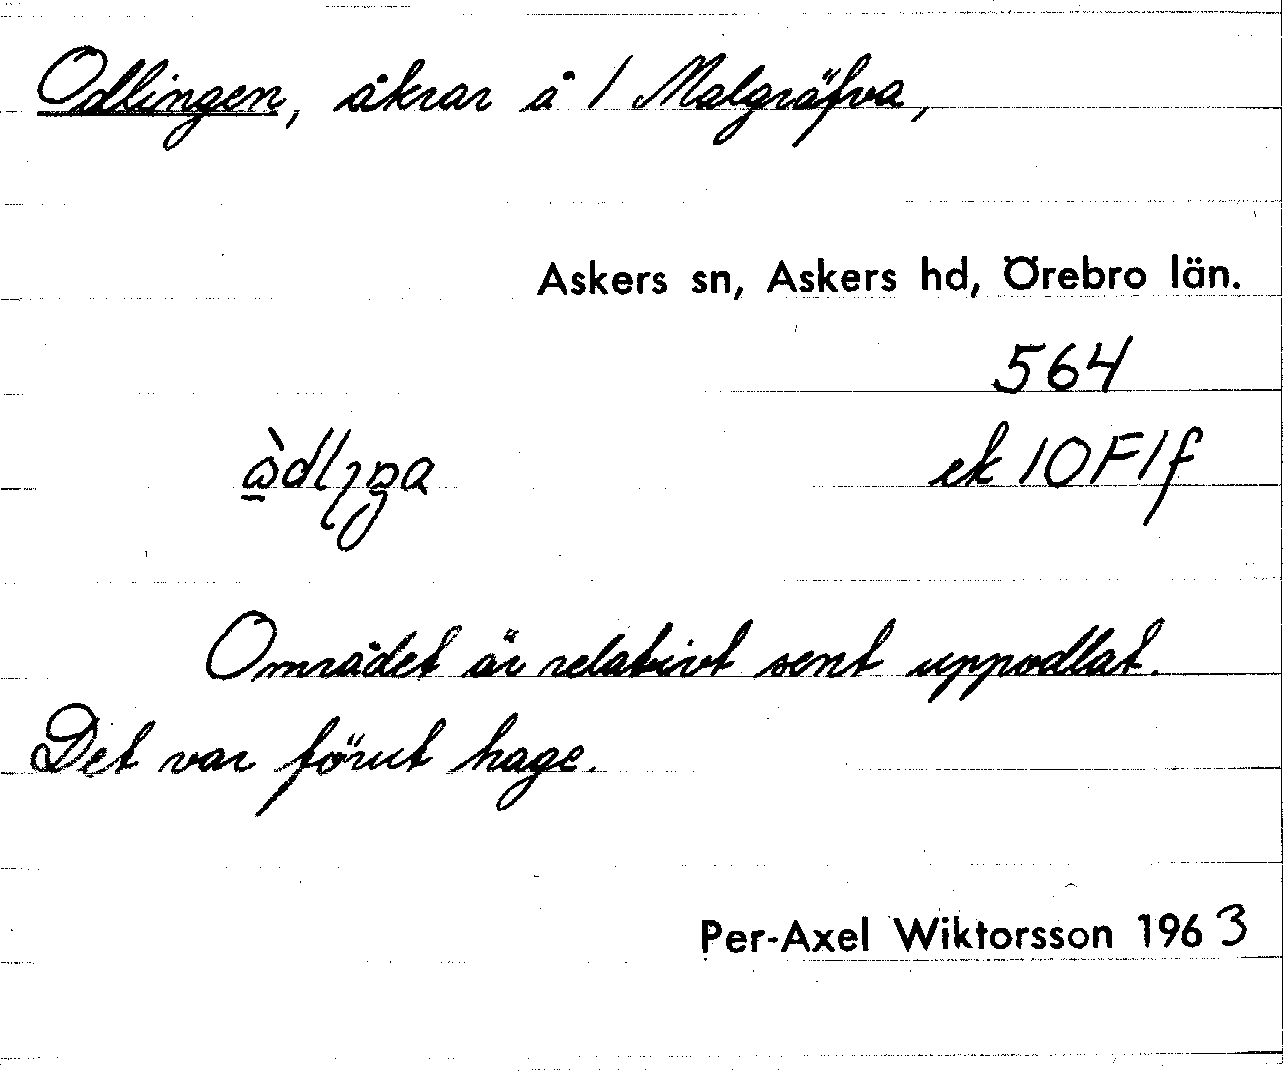 Odlingen, åkrar å 1 Malgräfva,
Askers sn, Askers hd, Örebro län.
564
ek 10F1f
Området är relativt sent uppodlat.
Det var förut hage.
Per-Axel Wiktorsson 1963